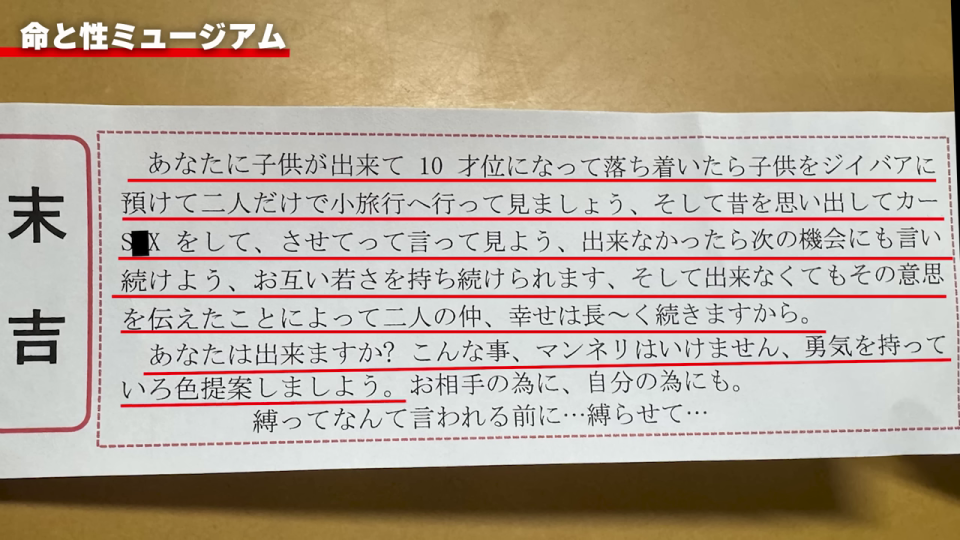 命と性ミュージアム
末吉
あなたに子供が出来て 10 才位になって落ち着いたら子供をジイバアに
預けて二人だけで小旅行へ行って見ましょう、そして昔を思い出してカー
S█X をして、させてって言って見よう、出来なかったら次の機会にも言い
続けよう、お互い若さを持ち続けられます、そして出来なくてもその意思
を伝えたことによって二人の仲、幸せは長～く続きますから。
あなたは出来ますか? こんな事、マンネリはいけません、勇気を持って
いろ色提案しましよう。お相手の為に、自分の為にも。
縛ってなんて言われる前に…縛らせて…